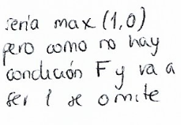 sería max (1,0)
pero como no hay
condición F y va a
ser 1 se omite